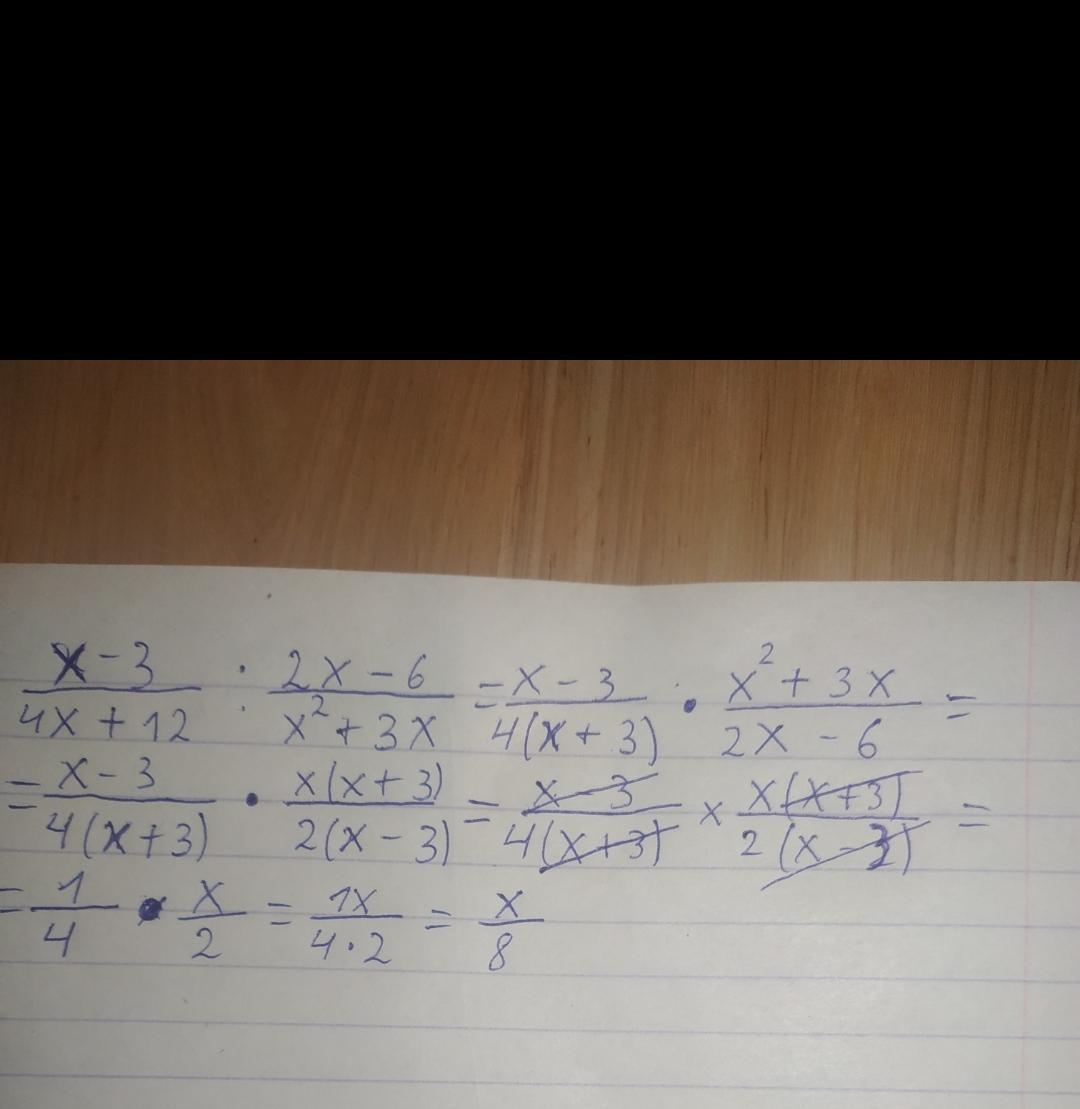 x-3/4x+12 : 2x-6/x²+3x = x-3/4(x+3) · x²+3x/2x-6 =
= x-3/4(x+3) · x(x+3)/2(x-3) = x-3/4(x+3) × x(x+3)/2(x-3) =
= 1/4 · x/2 = 1x/4·2 = x/8